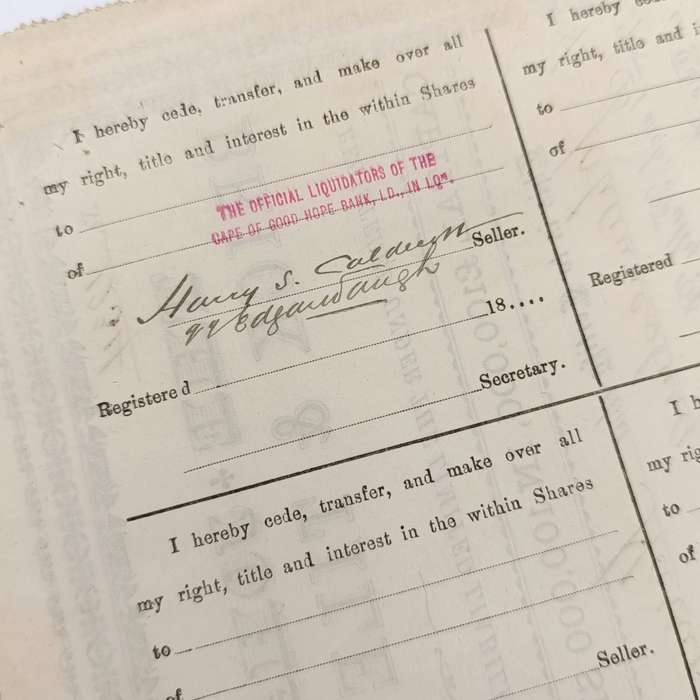 I hereby cede, transfer, and make over all
my right, title and interest in the within Shares
to
THE OFFICIAL LIQUIDATORS OF THE
CAPE OF GOOD HOPE BANK, LD., IN LQN.
of
Harry S.
Seller.
18....
Registered
Secretary.
I hereby cede, transfer, and make over all
my right, title and interest in the within Shares
to
of
Seller.
I hereby
my right, title and
to
of
Registered
I
my
to
of